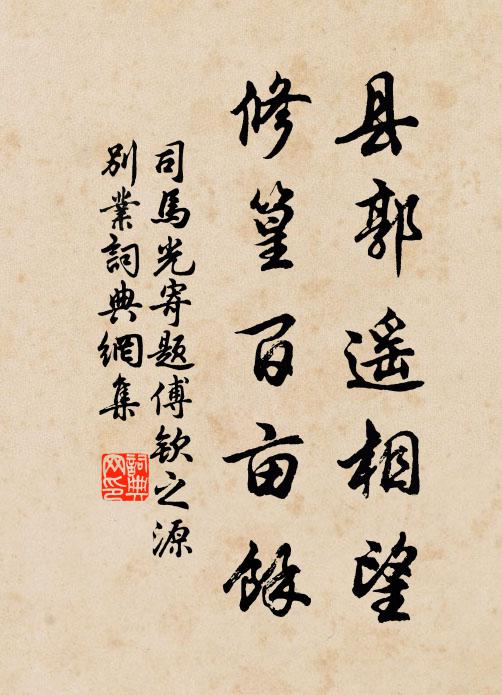 县郭遥相望
修篁百亩餘
司馬光寄題傅欽之源
別業詞典網集
詞典网印